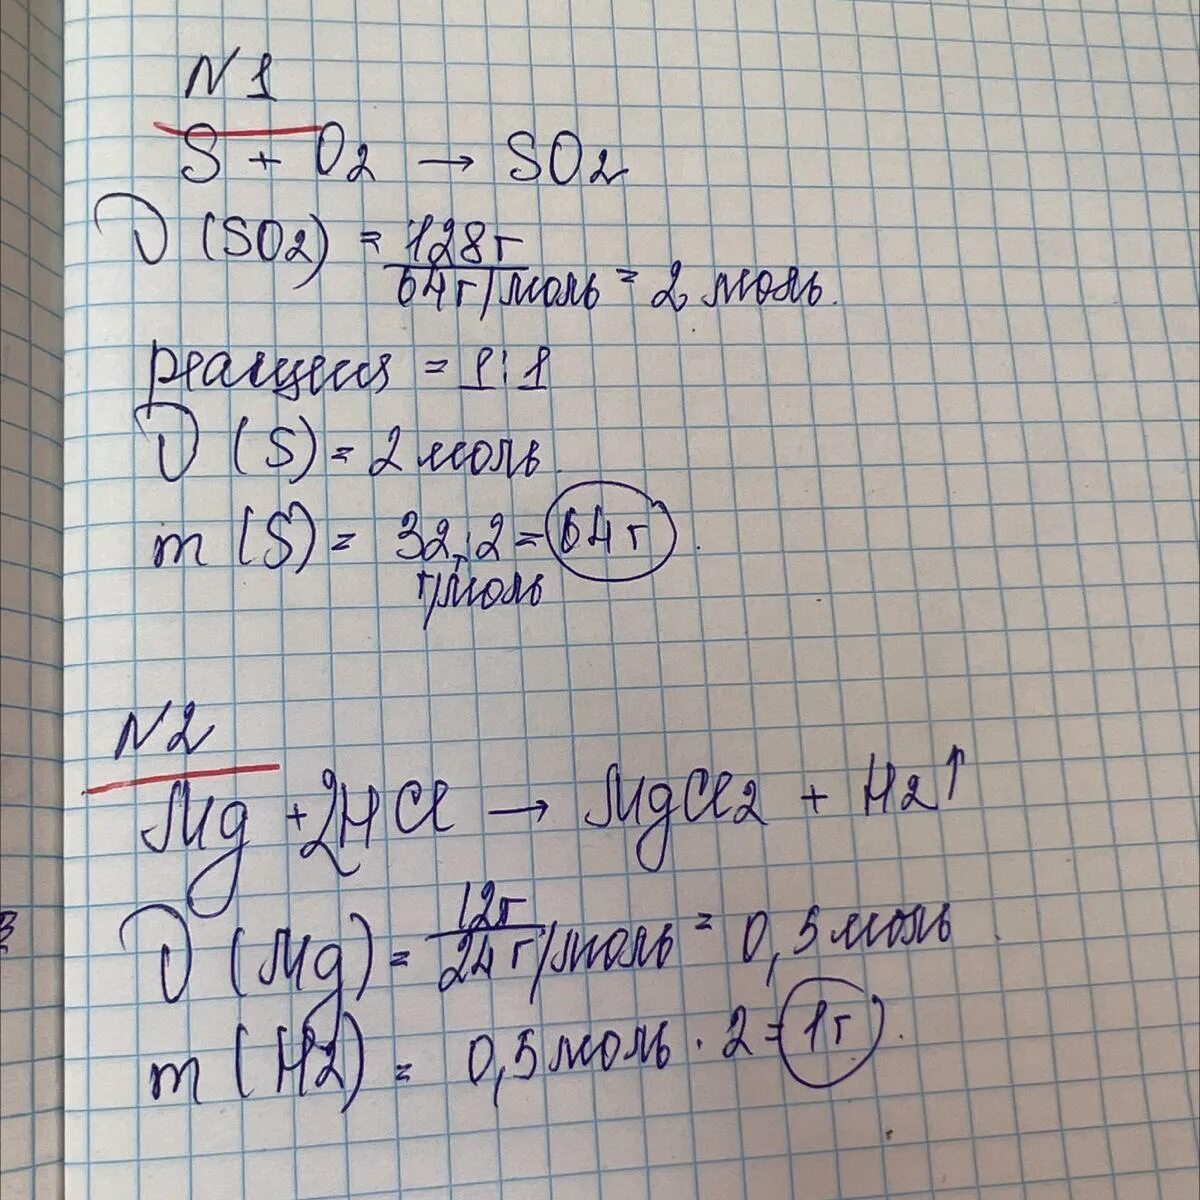 N1
S + O2 → SO2
ν (SO2) = 128г / 64г/моль = 2 моль.
реакция = 1:1
ν (S) = 2 моль.
m (S) = 32 г/моль · 2 = 64 г.
N2
Mg + 2HCl → MgCl2 + H2↑
ν (Mg) = 12г / 24г/моль = 0,5 моль.
m (H2) = 0,5 моль · 2 = 1г.